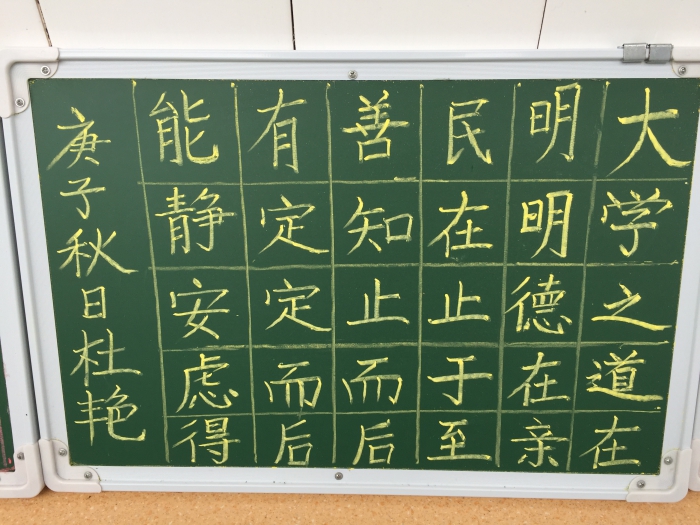 大学之道在
明明德在亲
民在止于至
善知止而后
有定定而后
能静安虑得
庚子秋日杜艳